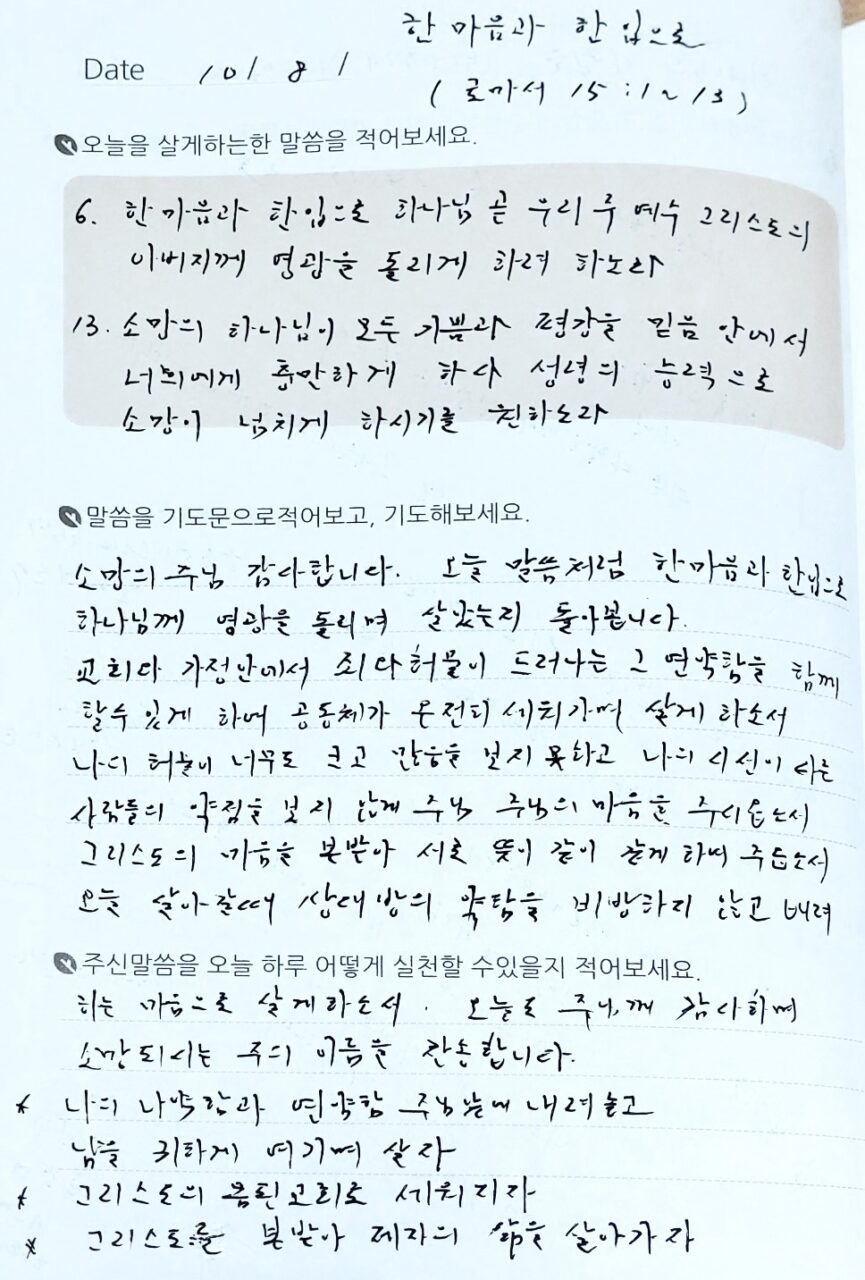 한 마음과 한 입으로
Date 10/ 8/
(로마서 15:1~13)
오늘을 살게하는한 말씀을 적어보세요.
6. 한마음과 한입으로 하나님 곧 우리 주 예수 그리스도의
아버지께 영광을 돌리게 하려 하노라
13. 소망의 하나님이 모든 기쁨과 평강을 믿음 안에서
너희에게 충만하게 하사 성령의 능력으로
소망이 넘치게 하시기를 원하노라
말씀을 기도문으로적어보고, 기도해보세요.
소망의 주님 감사합니다. 오늘 말씀처럼 한마음과 한입으로
하나님께 영광을 돌리며 살았는지 돌아봅니다.
교회와 가정안에서 죄와 허물이 드러나는 그 연약함을 함께
할수 있게 하여 공동체가 온전히 세워가며 살게 하소서
나의 허물이 너무도 크고 많음을 보지 못하고 나의 시선이 다른
사람들의 약점을 보지 않게 주님 주님의 마음을 주시옵소서
그리스도의 마음을 본받아 서로 뜻이 같이 같게 하여 주옵소서
오늘 살아갈때 상대방의 약함을 비방하지 않고 배려
주신말씀을 오늘 하루 어떻게 실천할 수있을지 적어보세요.
하는 마음으로 살게하소서. 오늘도 주님께 감사하며
소망되시는 주의 이름을 찬송합니다.
* 나의 나약함과 연약함 주님앞에 내려놓고
남을 귀하게 여기며 살자
* 그리스도의 몸된교회로 세워지자
* 그리스도를 본받아 제자의 삶을 살아가자